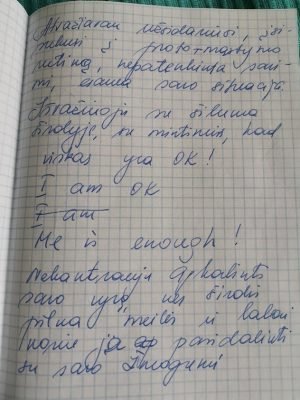 Atvažiavau užsidariusi, įsi-
kibusi į protomąstymo
rutiną, nepatenkinta savi-
mi, esama savo situacija.
Išvažiuoju su šiluma
širdyje, su mintimis, kad
viskas yra OK!
I am OK
I am
Me is enough!
Nekantrauju apkabinti
savo vyrą, nes širdis
pilna meilės ir labai
noriu ja pasidalinti
su savo žmogumi